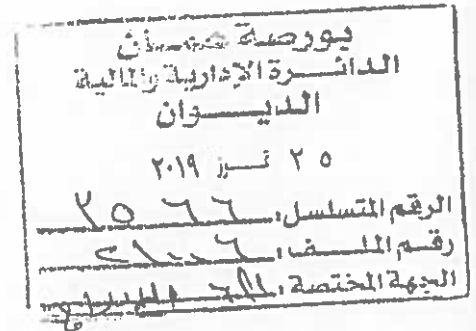 بورصة عمــان
الدائــرة الإدارية والمالية
الديـــوان
٢٥ تمـوز ٢٠١٩
الرقم المتسلسل: ٢٥٦٦
رقم الملــف:
الجهة المختصة: